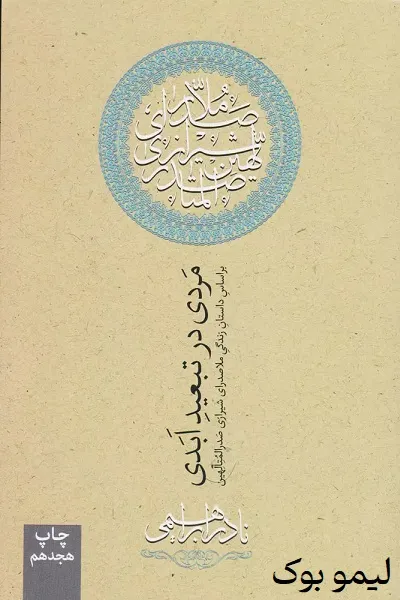 ملاصدرای
شیرازی
صدرالمتألهین
مَردی در تبعیدِ ابَدی
براساسِ داستانِ زندگیِ ملاصدرای شیرازی صَدرالمُتألهین
نادر ابراهیمی
چاپ
هجدهم
لیمو بوک